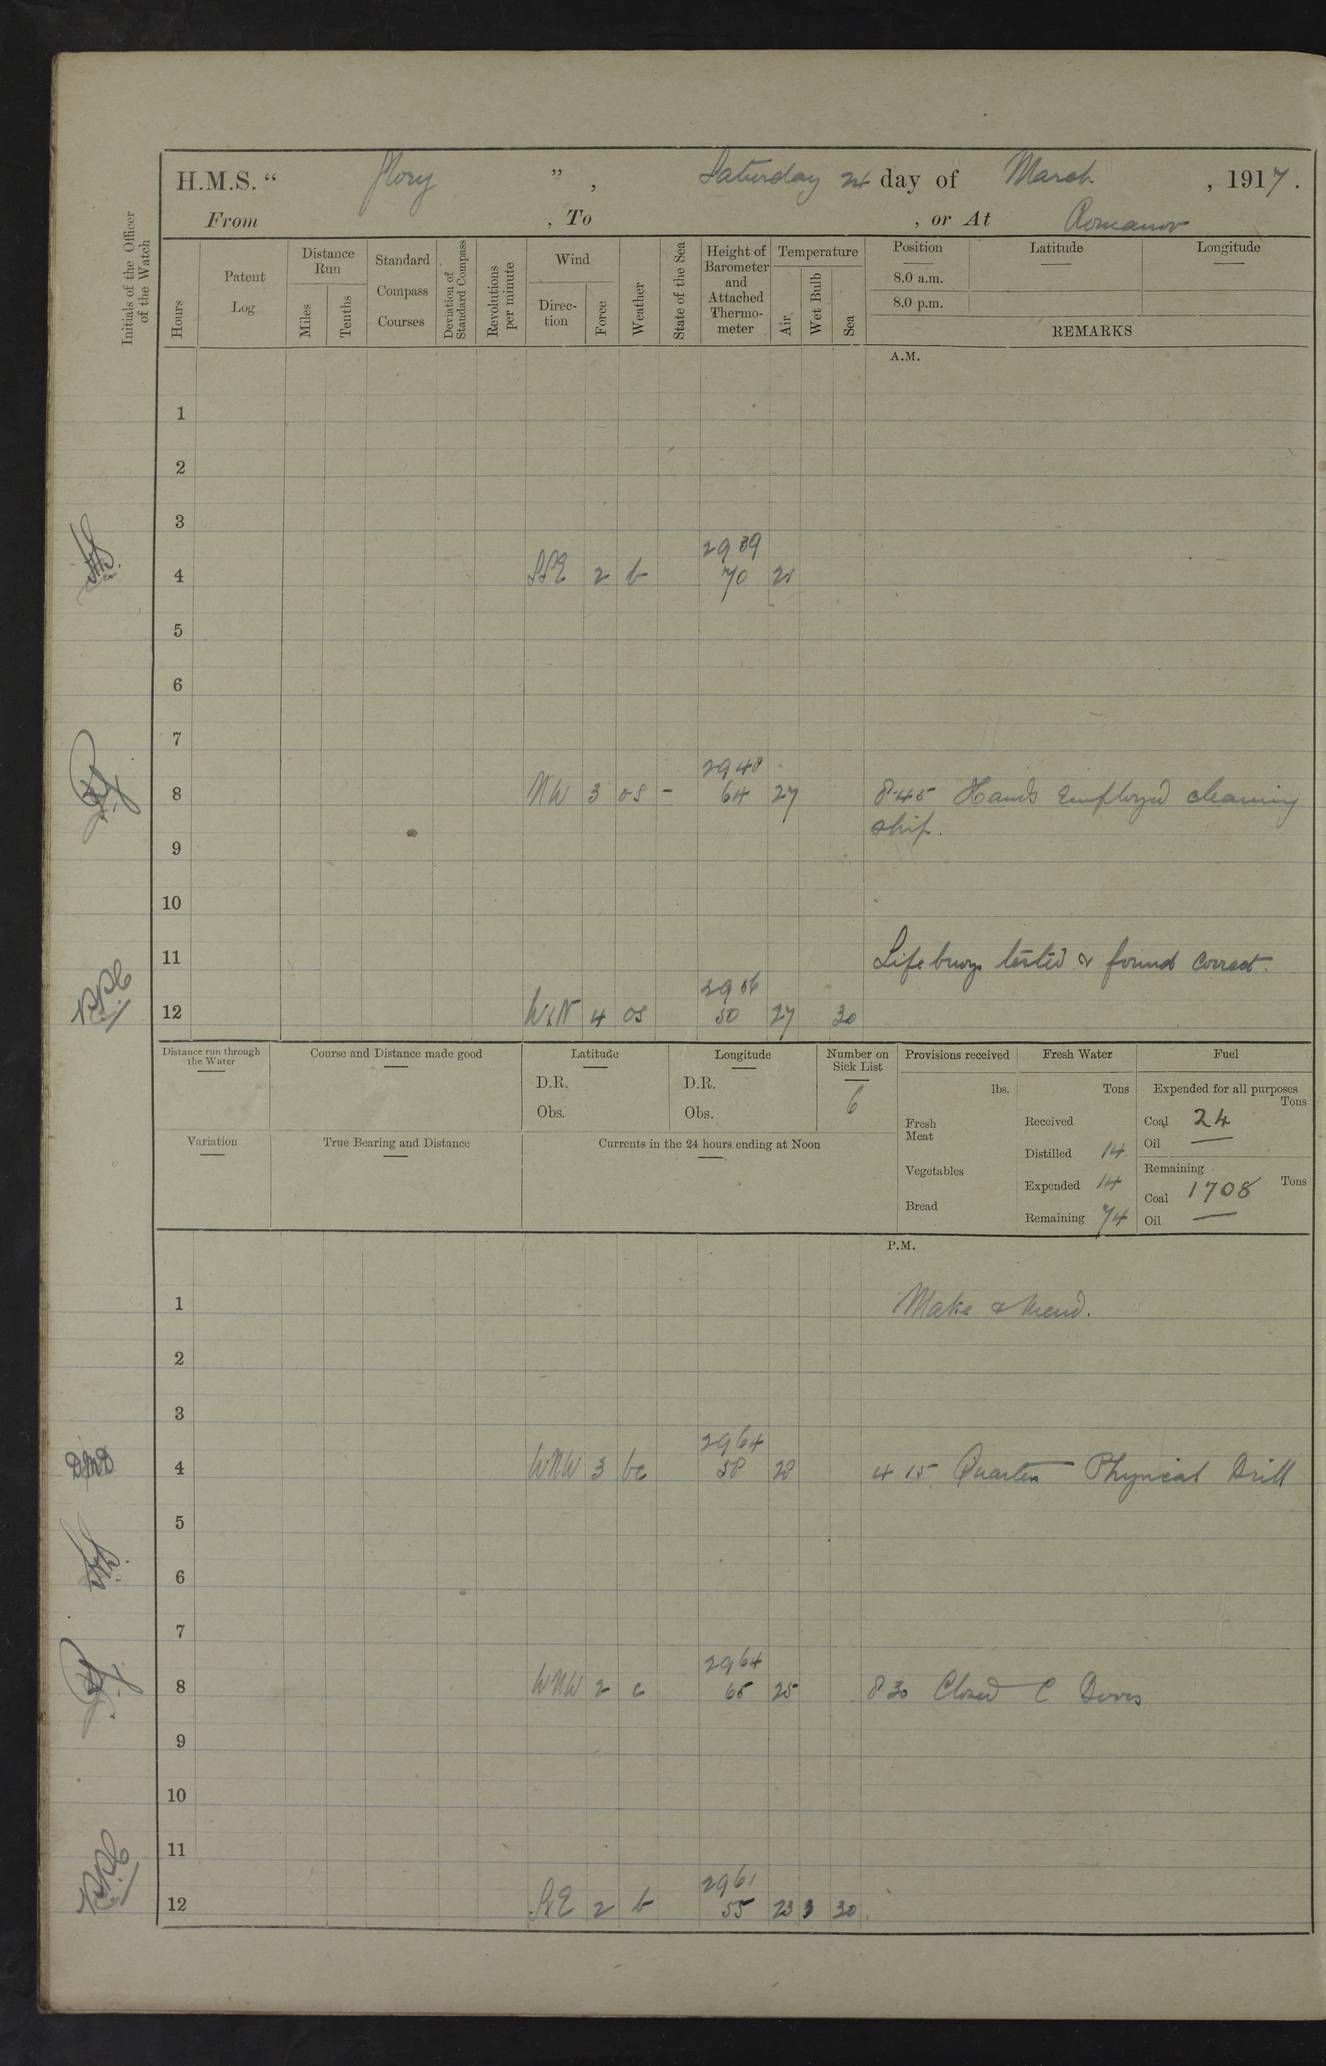 H.M.S. “ Glory ” , Saturday 24 day of March , 1917 .
From , To , or At Romanov
Initials of the Officer of the Watch
Hours
Patent Log
Distance Run
Miles
Tenths
Standard Compass Courses
Deviation of Standard Compass
Revolutions per minute
Wind
Direc-tion
Force
Weather
State of the Sea
Height of Barometer and Attached Thermo-meter
Temperature
Air
Wet Bulb
Sea
Position Latitude Longitude
8.0 a.m.
8.0 p.m.
REMARKS
A.M.
1
2
3
2939
4 SSE 2 b 70 21
5
6
7
2948
8 NW 3 os - 64 27 8.45 Hands Employed cleaning
ship.
9
10
11 Lifebuoys tested & found correct.
2956
12 WxN 4 os 50 27 30
Distance run through the Water
Course and Distance made good
Latitude
D.R.
Obs.
Longitude
D.R.
Obs.
Number on Sick List
6
Provisions received
lbs.
Fresh Meat
Vegetables
Bread
Fresh Water
Tons
Received
Distilled 14
Expended 14
Remaining 74
Fuel
Expended for all purposes
Tons
Coal 24
Oil —
Remaining
Tons
Coal 1708
Oil —
Variation
True Bearing and Distance
Currents in the 24 hours ending at Noon
P.M.
1 Make & Mend.
2
3
2964
DMD 4 WNW 3 bc 58 28 4 15 Quarters Physical Drill
5
6
7
2964
8 WNW 2 c 65 25 8.30 Closed C Doors
9
10
11
2961
12 SxE 2 b 55 23 3 30